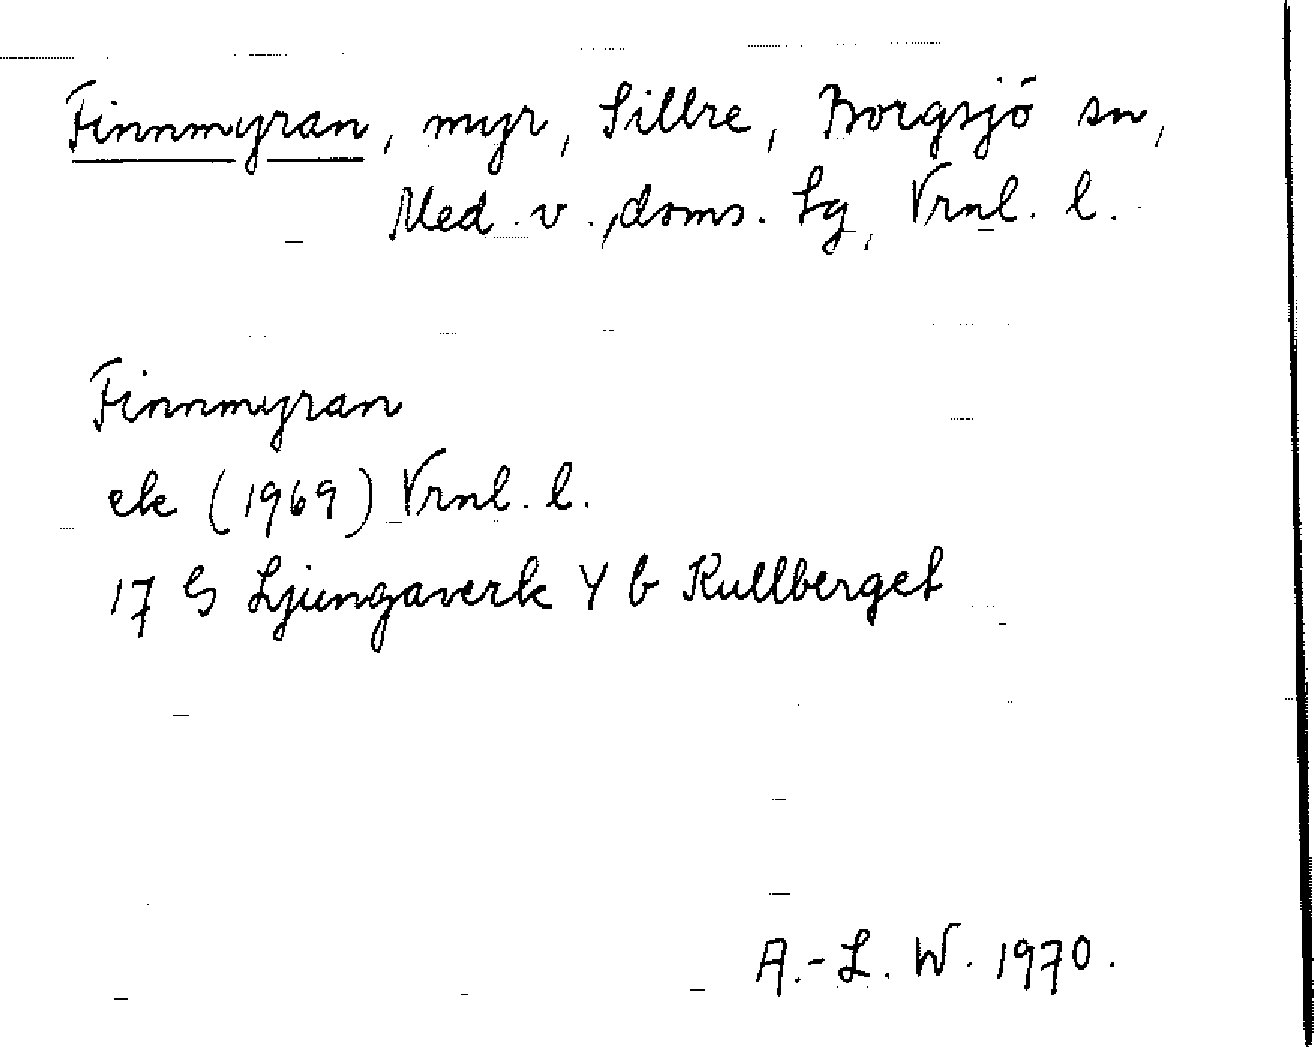 Finnmyran, myr, Sillre, Borgsjö sn,
Med. v., doms. Lg, Vrnl. l.
Finnmyran
ek (1969) Vrnl. l.
17 G Ljungaverk Y b Kullberget
A.-L. W. 1970.